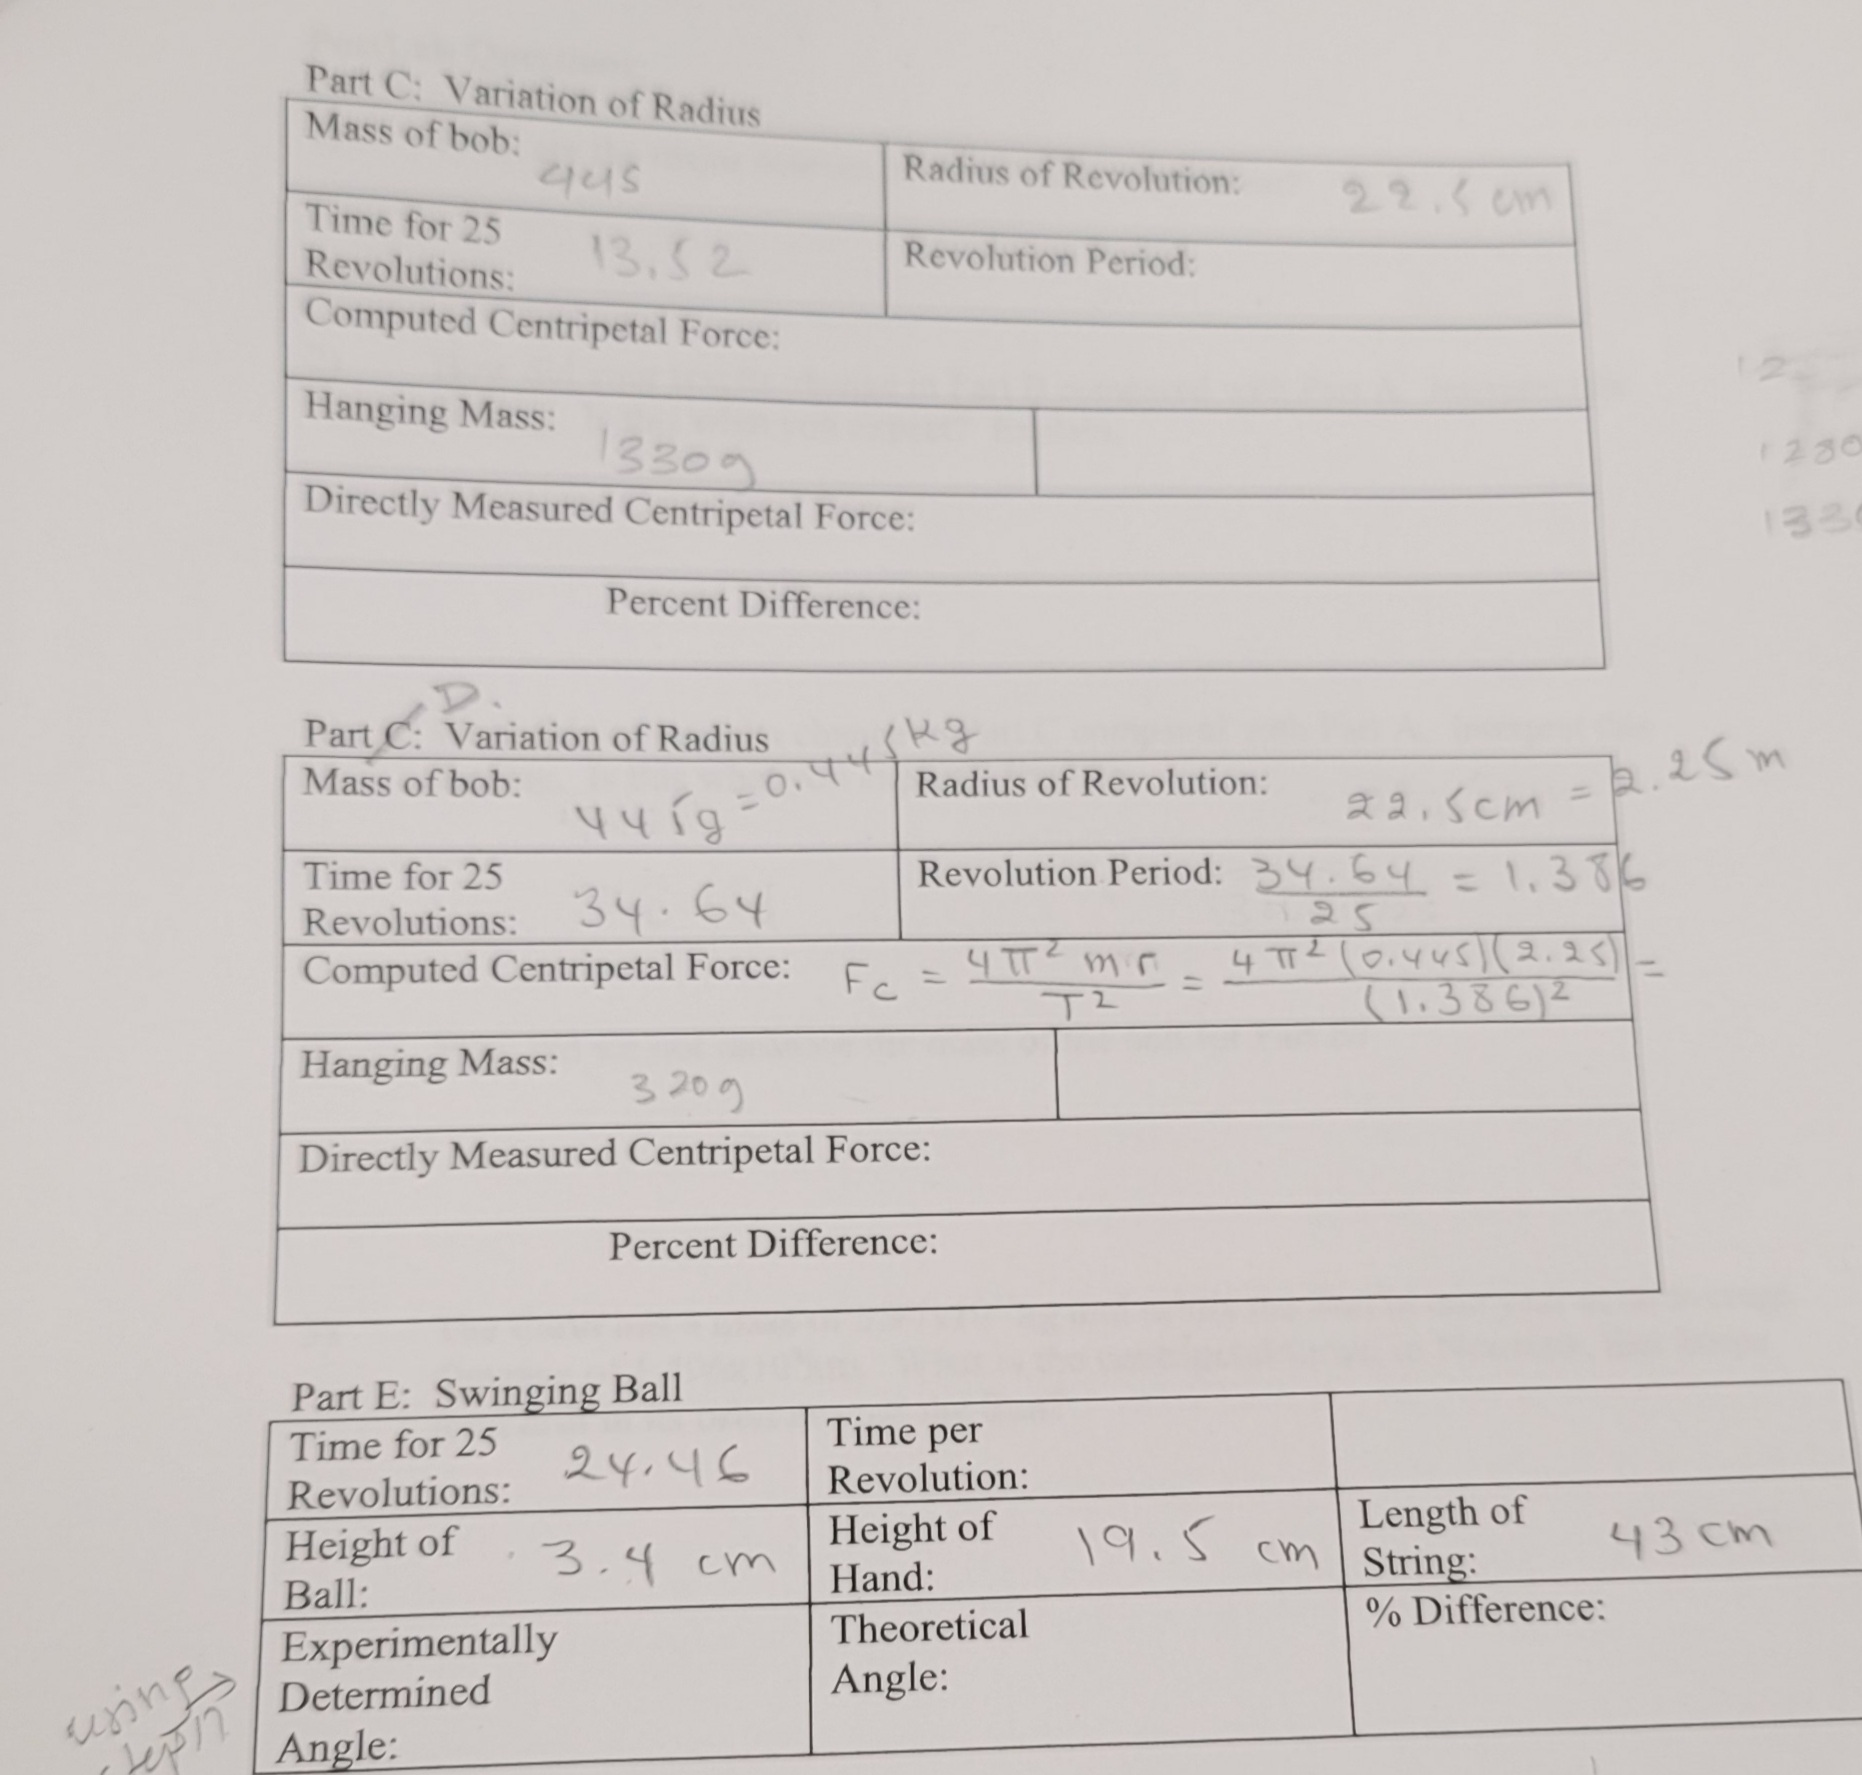 Part C: Variation of Radius
Mass of bob: 445
Radius of Revolution: 22.5 cm
Time for 25
Revolutions: 13.52
Revolution Period:
Computed Centripetal Force:
12
Hanging Mass: 1330g
1280
133
Directly Measured Centripetal Force:
Percent Difference:
D.
Part C: Variation of Radius
Mass of bob: 445g = 0.445kg
Radius of Revolution: 22.5cm = 2.25m
Time for 25
Revolutions: 34.64
Revolution Period: 34.64/25 = 1.386
Computed Centripetal Force: Fc = 4π² m·r/T² = 4π²(0.445)(2.25)/(1.386)² =
Hanging Mass: 320g
Directly Measured Centripetal Force:
Percent Difference:
Part E: Swinging Ball
Time for 25
Revolutions: 24.46
Time per
Revolution:
Height of
Ball: 3.4 cm
Height of
Hand: 19.5 cm
Length of
String: 43 cm
Experimentally
Determined
Angle:
Theoretical
Angle:
% Difference:
using →
step 17